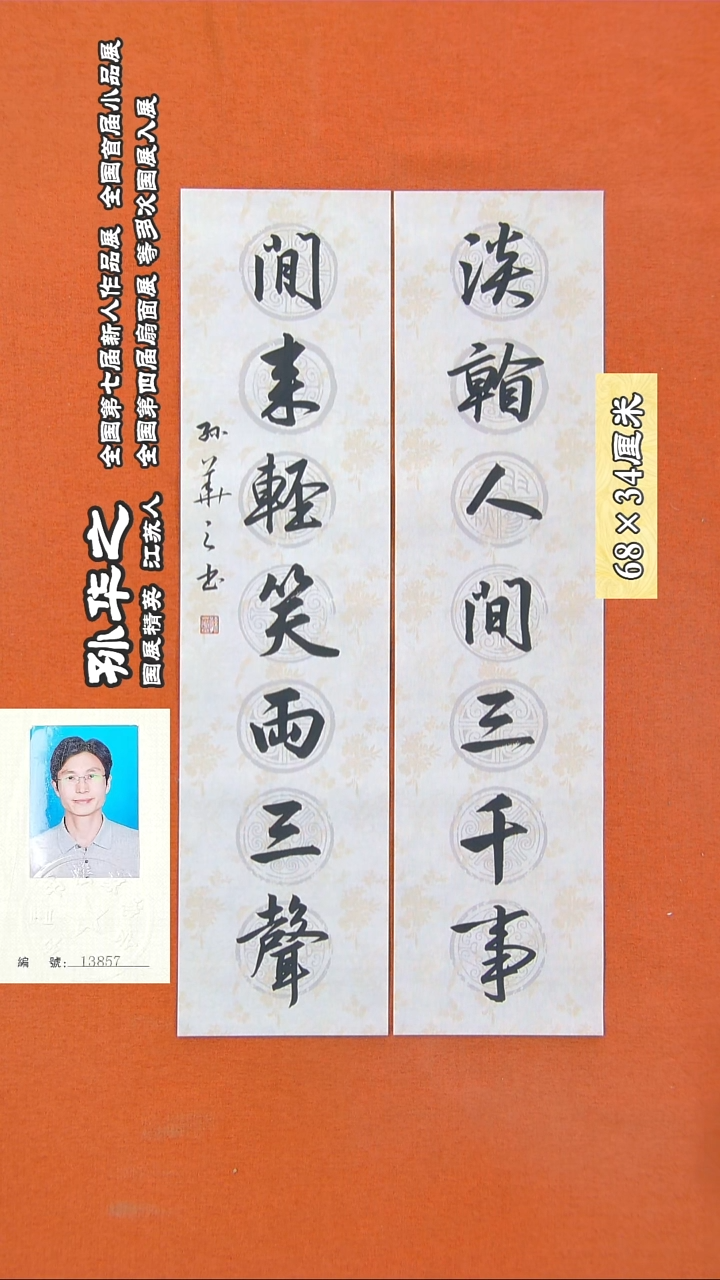 淡看人間三千事
閒來輕笑兩三聲
孙華之书
68×34厘米
孙华之
国展精英 江苏人
全国第七届新人作品展 全国首届小品展
全国第四届扇面展 等多次国展入展
編 號: 13857